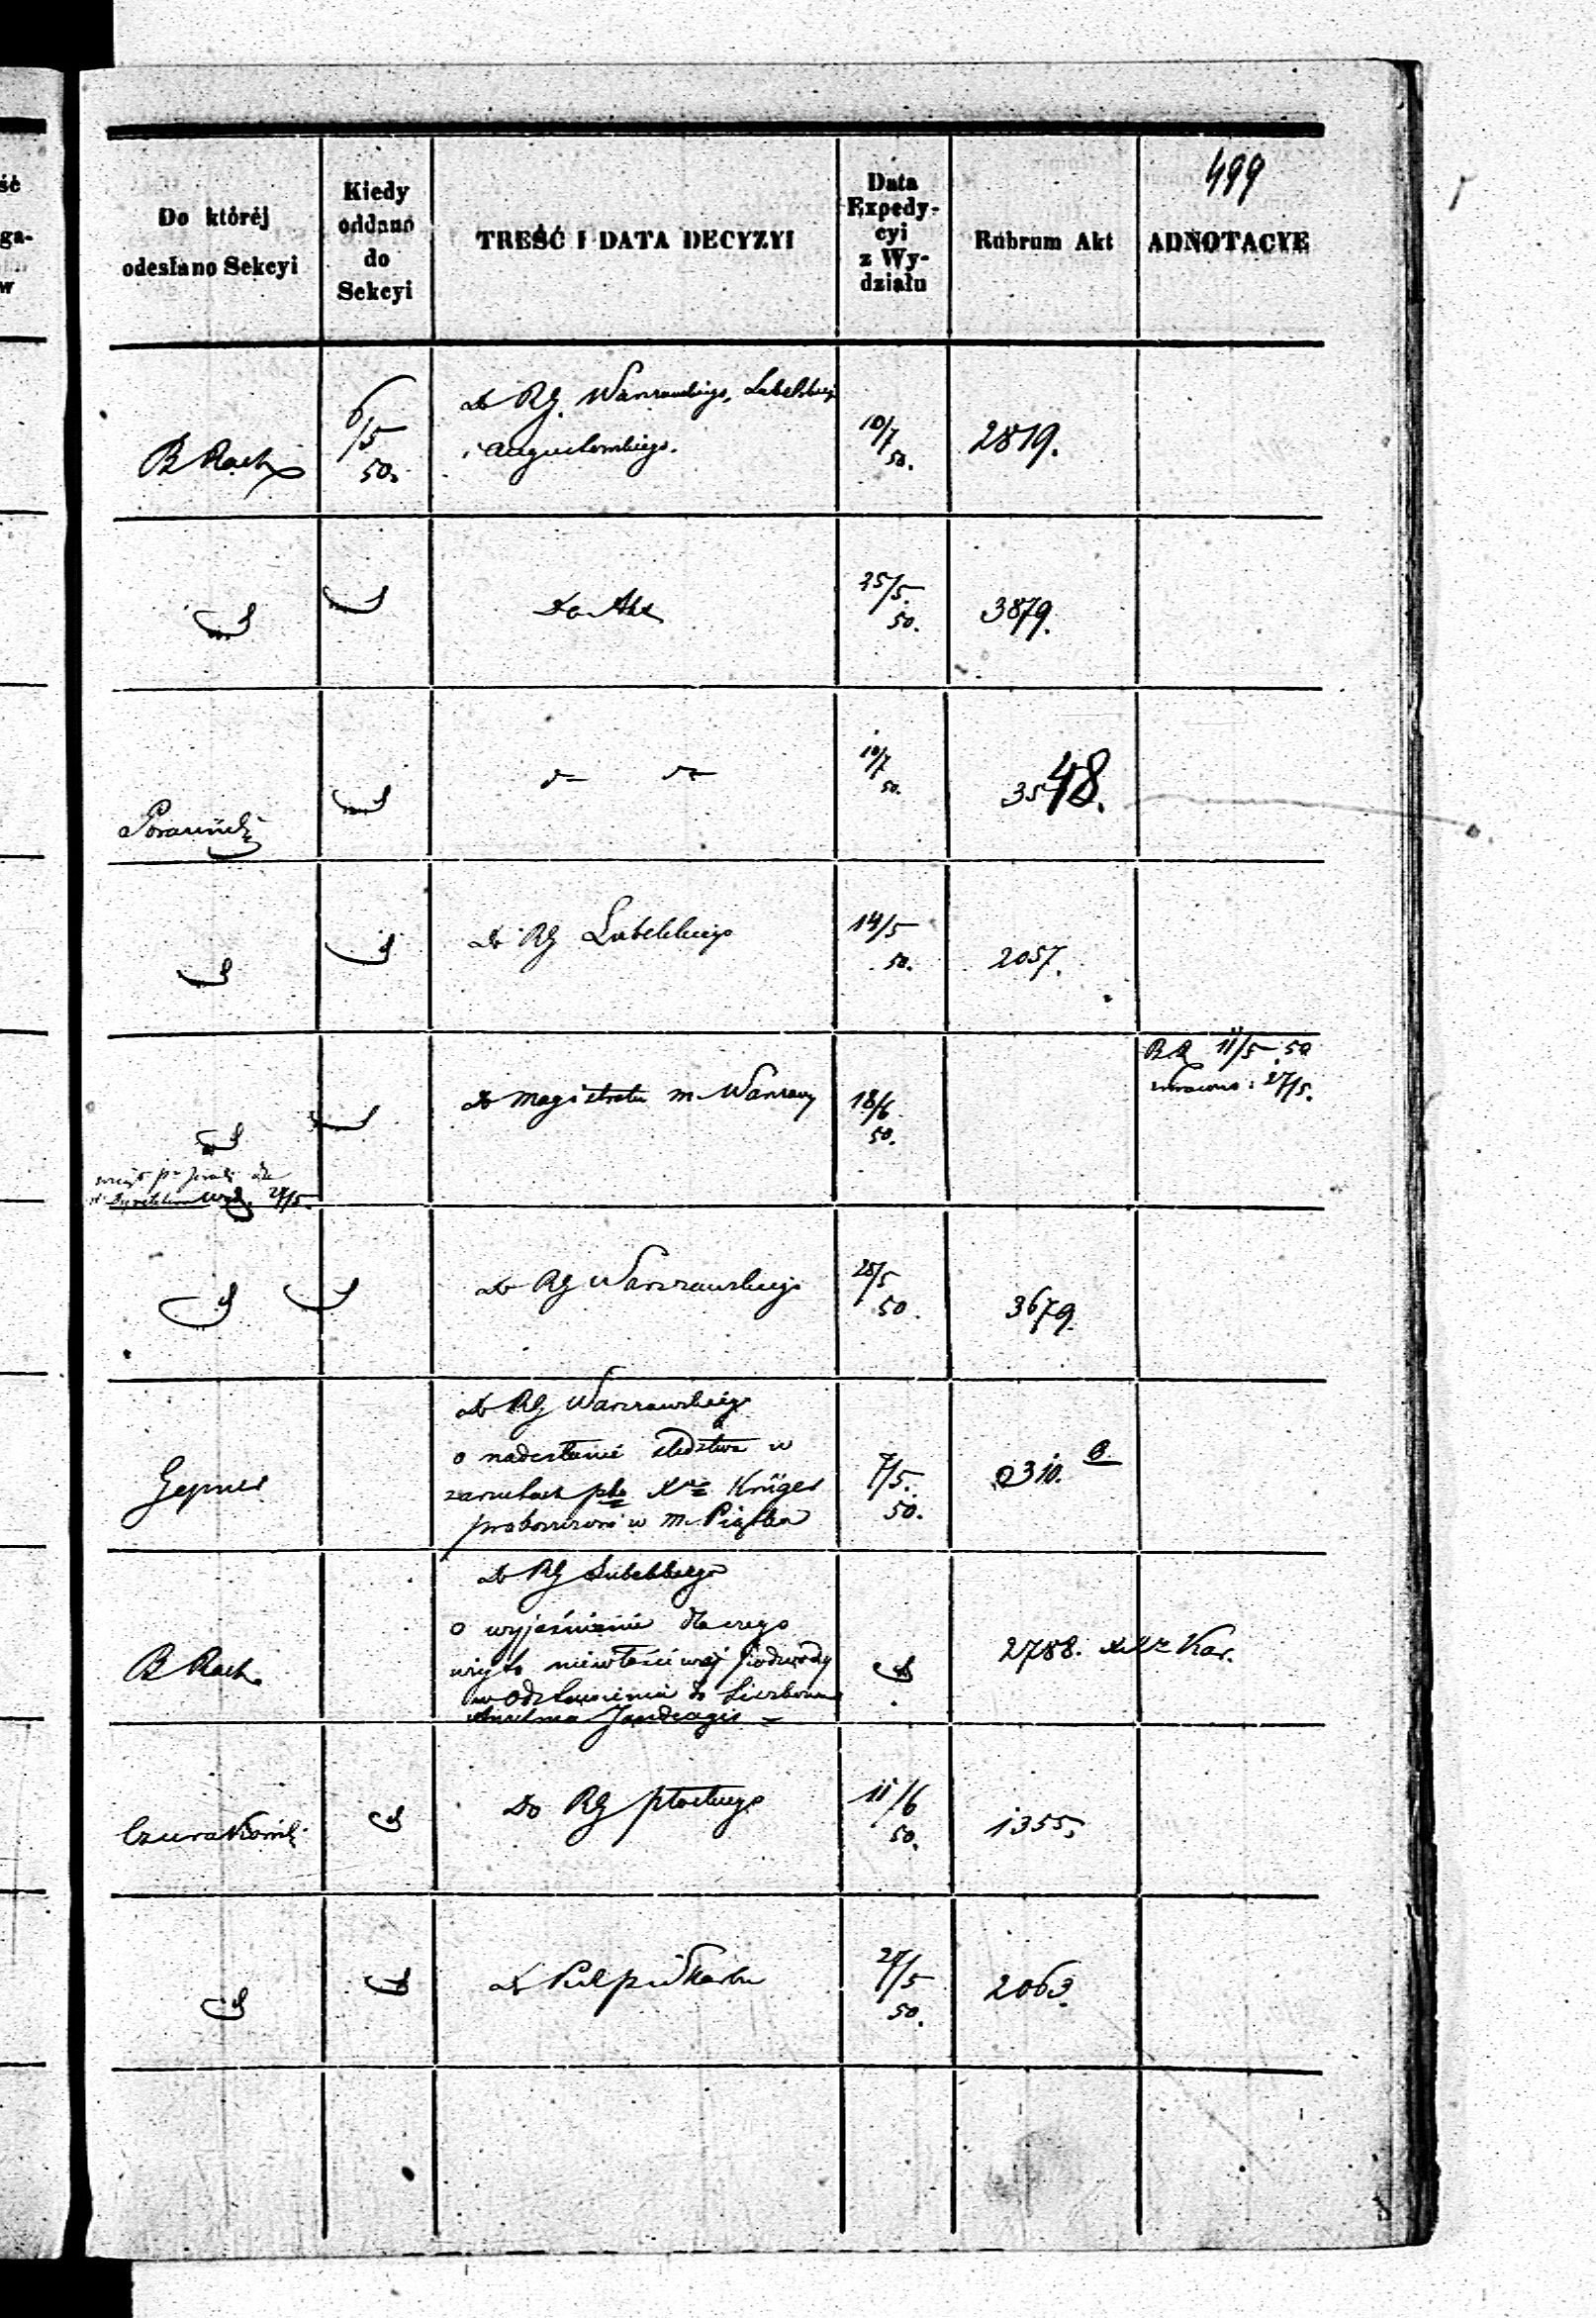 499
Do któréj
odesłano Sekcyi
Kiedy
oddano
do
Sekcyi
TREŚĆ I DATA DECYZYI
Data
Expedy-
cyi
z Wy-
działu
Rubrum Akt
ADNOTACYE
B Rach
6/5
50.
Do RG. Warszawskiego, Lubelskiego
i Augustowskiego.
10/7
50.
2819.
Do Akt
25/5.
50.
3879.
10/7
50.
3548.
Do RG Lubelskiego
14/5
50.
2057.
Do Magistratu m. Warszawy
18/6
50.
11/5 50
zwrócono: 27/5.
27/5.
Do RG Warszawskiego
28/5
50.
3679.
Gepner
Do RG Warszawskiego
o nadesłanie śledztwa w
zarzutach pko Xu Krüger
proboszczowi w m. Piątku
7/5.
50.
310. B.
B Rach.
Do RG Lubelskiego
o wyjaśnienie dlaczego
wzięto niewłaściwej podwody
w odstawieniu do
2788.
Kar.
Do RG Płockiego
11/6
50.
1355.
Do
27/5
50.
2063.